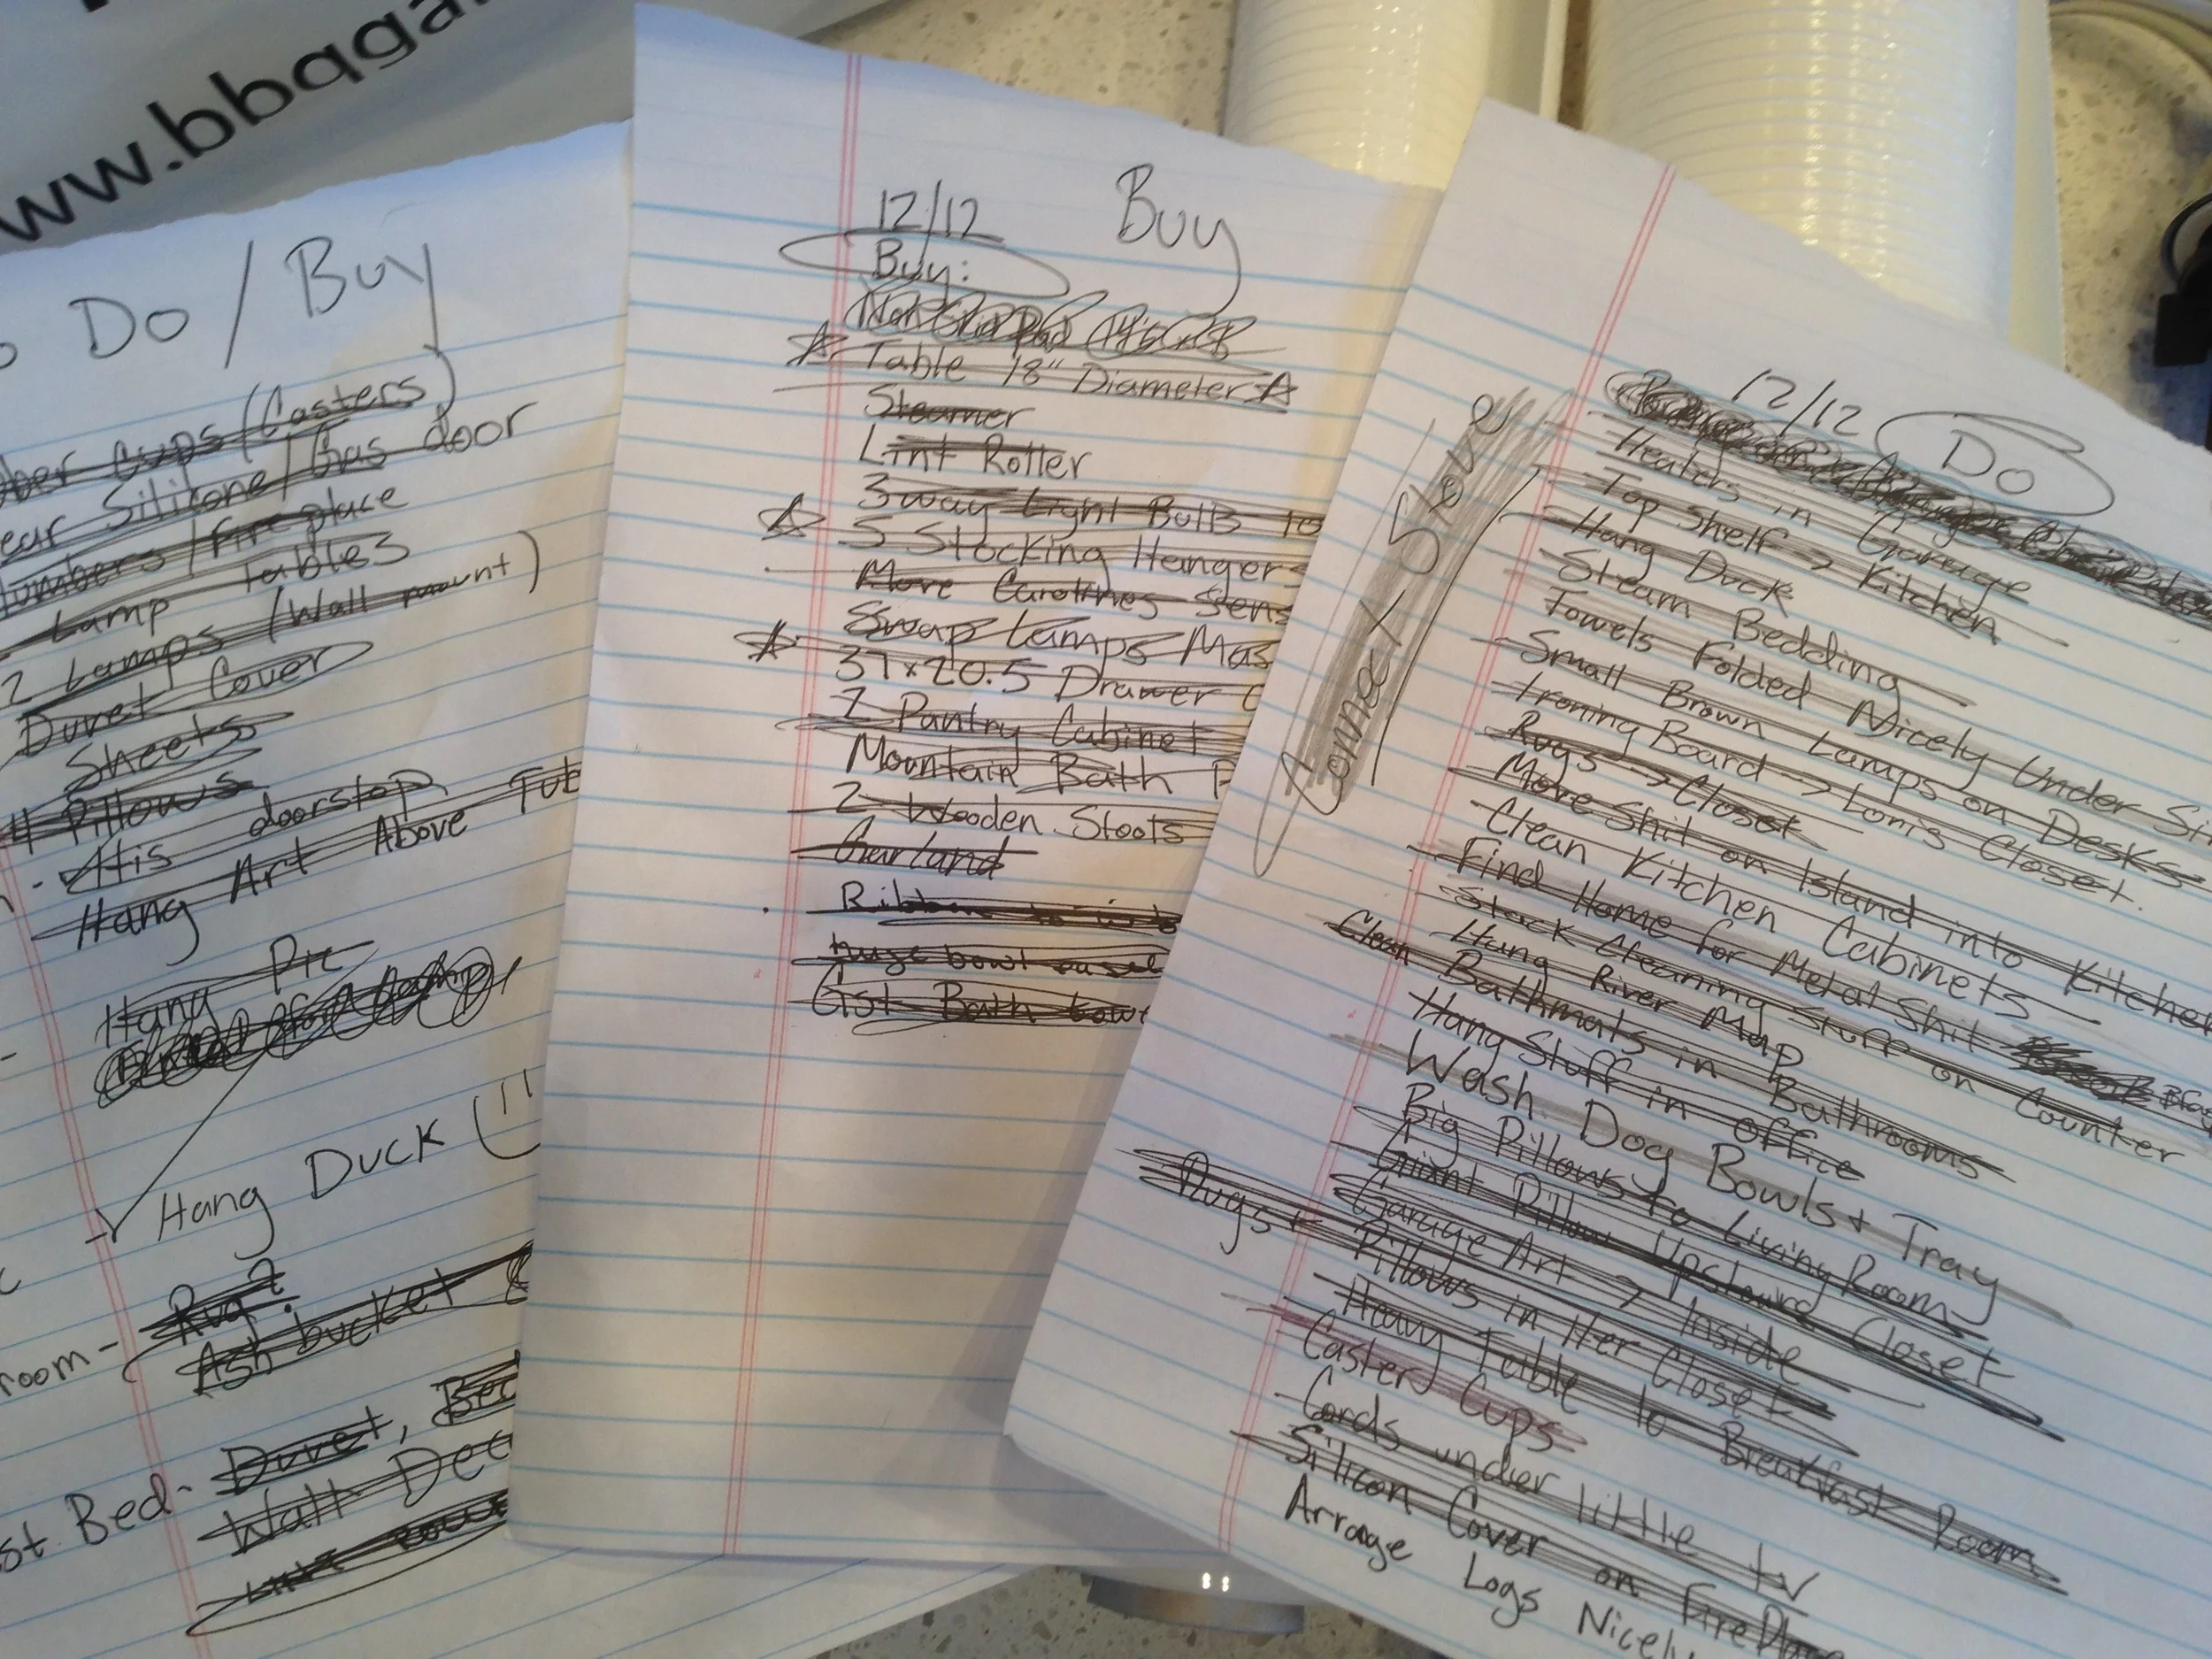 www.bbqga
Do / Buy
Cups (Casters)
Silicone / Gas door
/ Fireplace
Lamp tables
2 Lamps (Wall mount)
Duvet Cover
Sheets
4 Pillows
doorstop
Hang Art Above Tub
Hang Pic
Hang Duck
room - Rug?
Ash bucket &
st Bed - Duvet, Bed
Wall Dec
12/12 Buy
Buy:
Table 18" Diameter
Steamer
Lint Roller
3 way Light Bulbs to
5 Stocking Hangers
Move Carolines Sens
Swap Lamps Mas
37x20.5 Drawer C
2 Pantry Cabinet
Mountain Bath P
2 Wooden Stools
Garland
Ribbon to
huge bowl easel
Gst Bath towe
Connect Stove
12/12 Do
Heaters in Garage
Top Shelf → Kitchen
Hang Duck
Steam Bedding
Towels Folded Nicely Under Si
Small Brown Lamps on Desks
Ironing Board → Lori's Closet.
Rugs → Closet
Move Shit on Island into Kitchen
Clean Kitchen Cabinets
Find Home for Metal Shit
Stack Cleaning Stuff on Counter
Hang River Map
Clean Bathmats in Bathrooms
Hang Stuff in office
Wash Dog Bowls + Tray
Big Pillows to Living Room
Giant Pillow Upstairs Closet
Garage Art → Inside
Rugs + Pillows in Her Closet
Heavy Table to Breakfast Room
Caster Cups
Cords under little tv
Silicon Cover on Fireplace
Arrange Logs Nicely